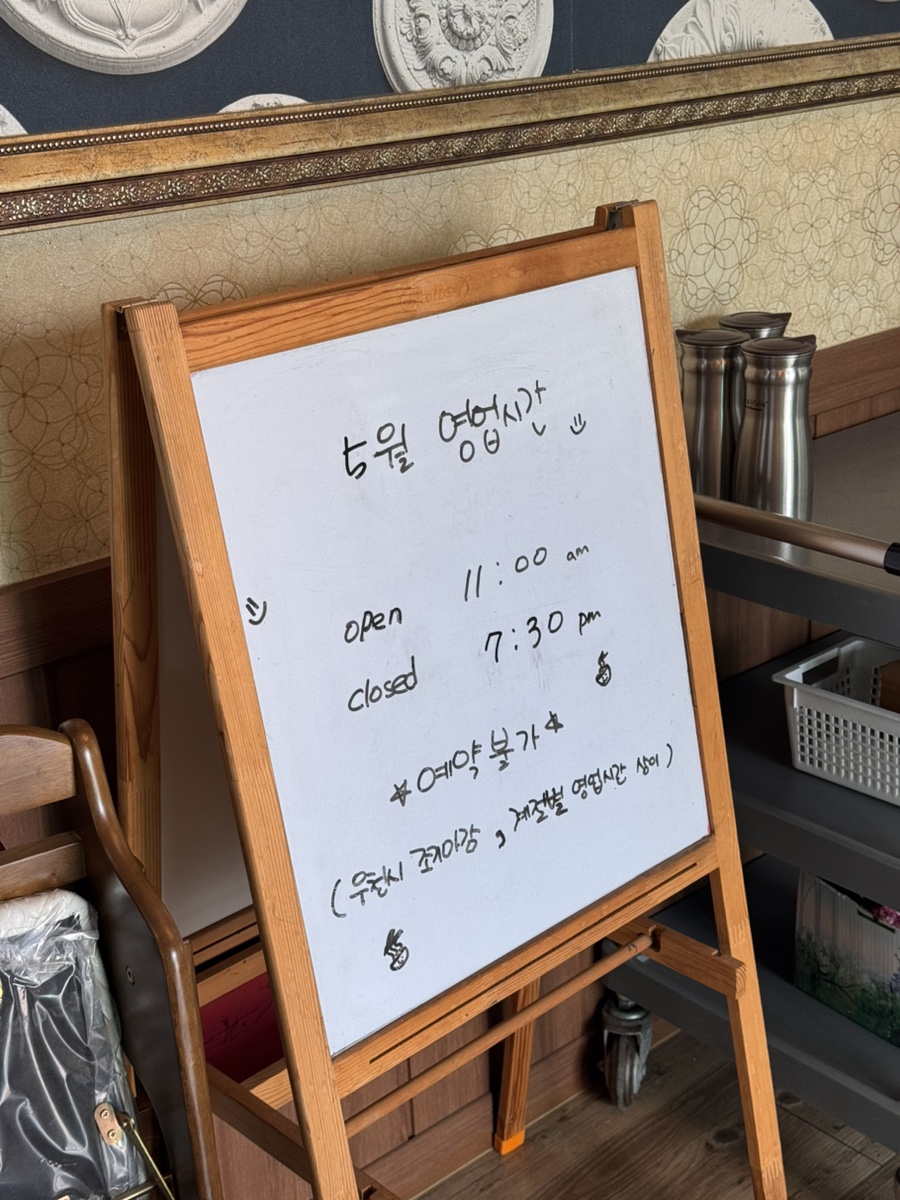 5월 영업시간
open 11:00 am
closed 7:30 pm
예약 불가
(우천시 조기마감, 계절별 영업시간 상이)